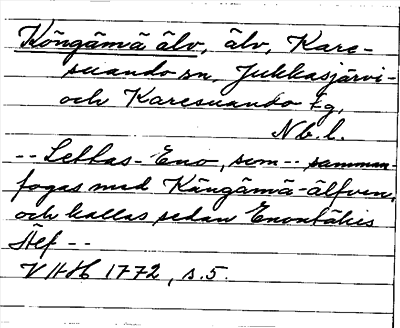 Köngämä älv, älv, Kare-
suando sn, Jukkasjärvi-
och Karesuando tg,
Nb. l.
-- Lettas-Eno, som -- samman-
fogas med Kängämä-älfven,
och kallas sedan Enontäkis
Älf --
VHH 1772, s. 5.